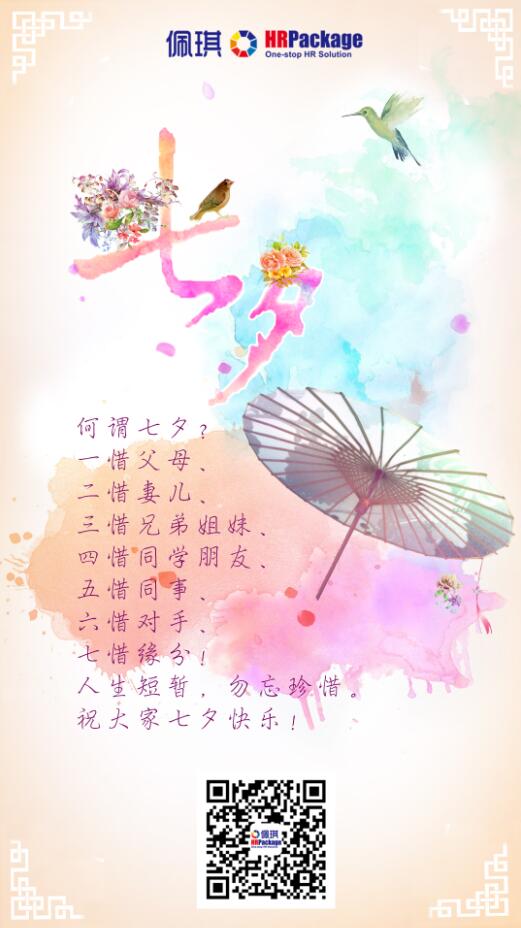 佩琪 HRPackage
One-stop HR Solution
七夕
何谓七夕？
一惜父母、
二惜妻儿、
三惜兄弟姐妹、
四惜同学朋友、
五惜同事、
六惜对手、
七惜缘分！
人生短暂，勿忘珍惜。
祝大家七夕快乐！
佩琪
HRPackage
One-stop HR Solution